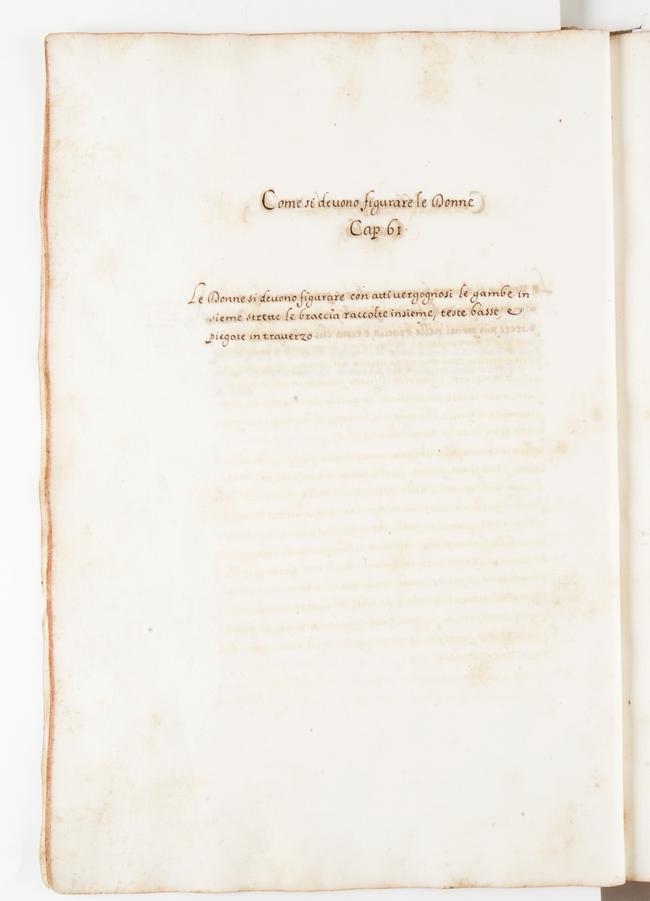 Come si devono figurare le Donne
Cap 61.
Le Donne si devono figurare con atti vergognosi le gambe in
sieme strette le braccia raccolte insieme, teste basse, e
piegate in traverzo